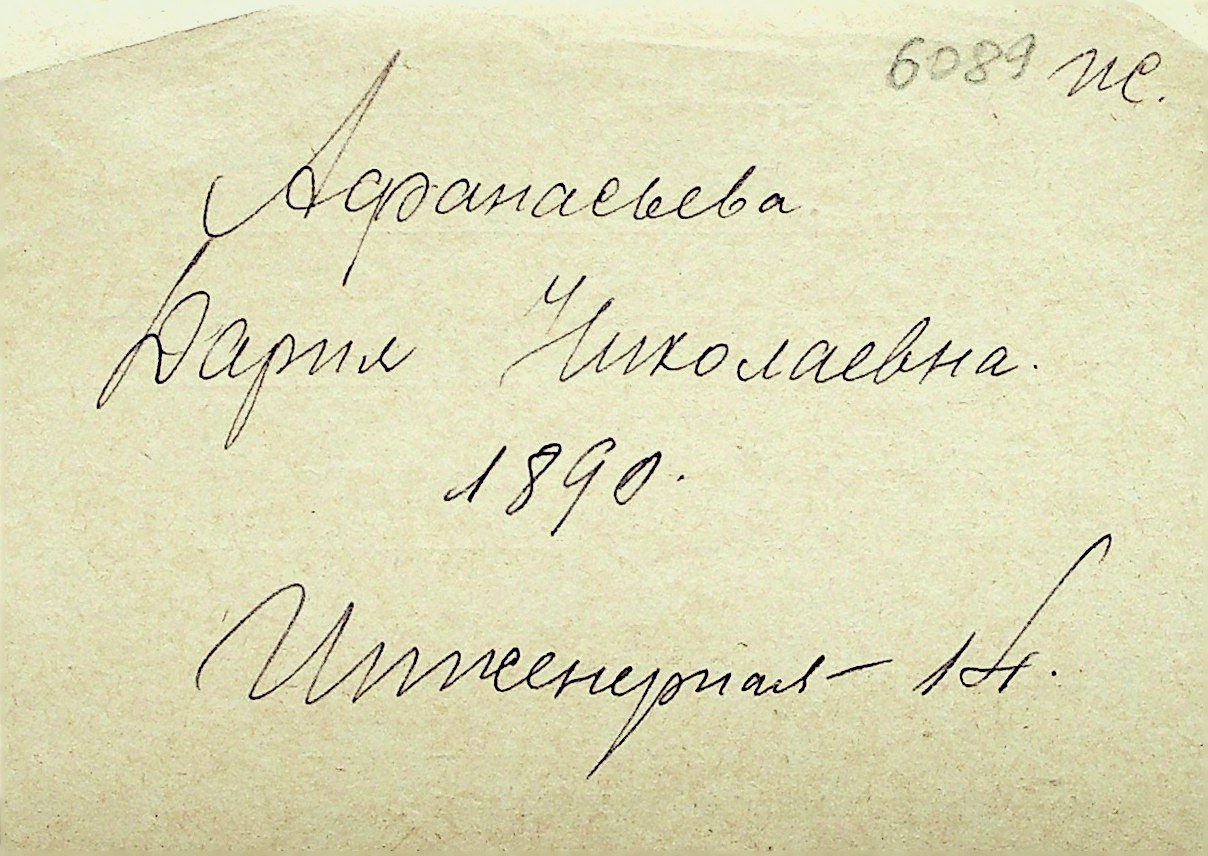 6089 пс.
Афанасьева
Дария Николаевна.
1890.
Инженерная - 14.